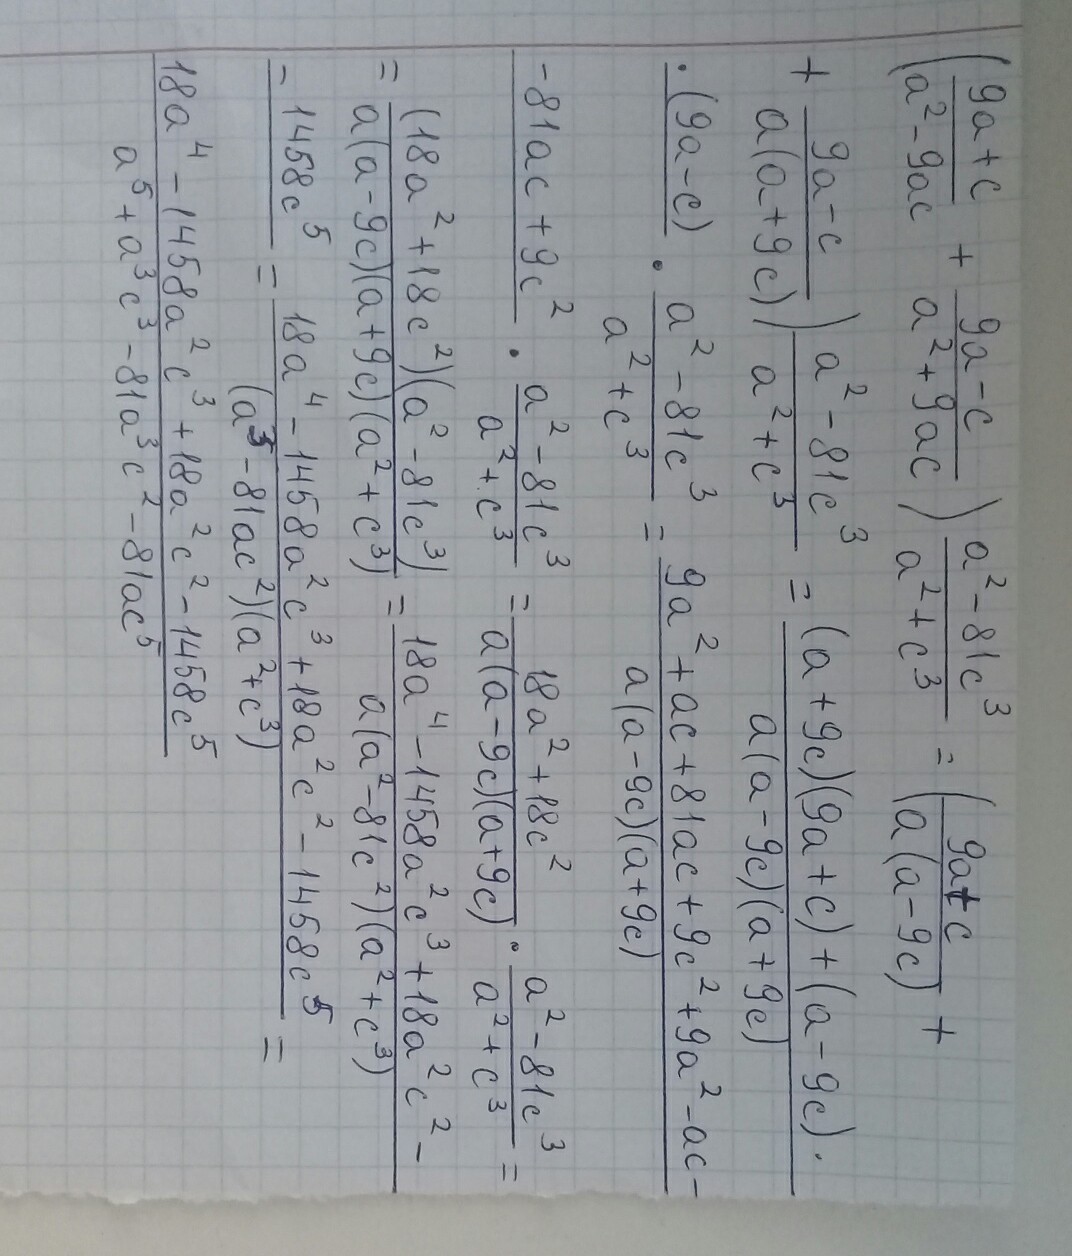 (9a+c/a²-9ac + 9a-c/a²+9ac) a²-81c³/a²+c³ = (9a+c/a(a-9c) +
+ 9a-c/a(a+9c)) a²-81c³/a²+c³ = (a+9c)(9a+c)+(a-9c)·/a(a-9c)(a+9c)
·(9a-c) · a²-81c³/a²+c³ = 9a²+ac+81ac+9c²+9a²-ac-/a(a-9c)(a+9c)
-81ac+9c² · a²-81c³/a²+c³ = 18a²+18c²/a(a-9c)(a+9c) · a²-81c³/a²+c³ =
= (18a²+18c²)(a²-81c³)/a(a-9c)(a+9c)(a²+c³) = 18a⁴-1458a²c³+18a²c²-/a(a²-81c²)(a²+c³)
-1458c⁵ = 18a⁴-1458a²c³+18a²c²-1458c⁵/(a³-81ac²)(a²+c³) =
18a⁴-1458a²c³+18a²c²-1458c⁵/a⁵+a³c³-81a³c²-81ac⁵